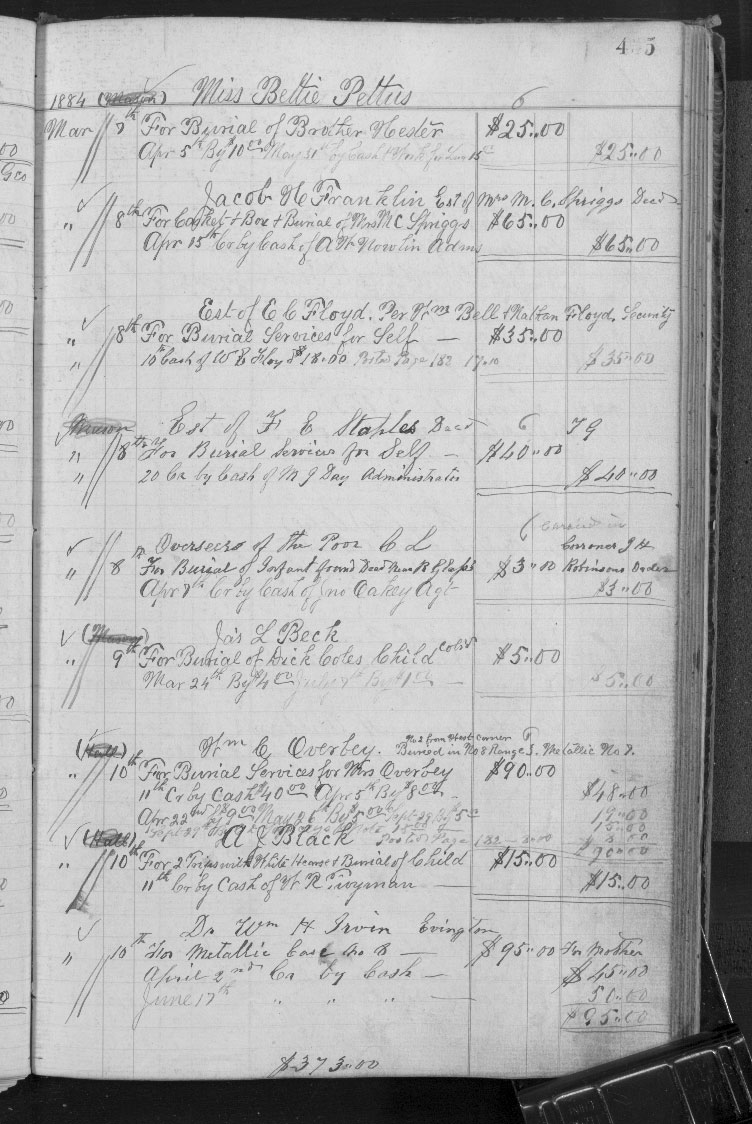 45
1884 (Mason) Miss Bettie Pettus 6
Mar 7th For Burial of Brother Hester $25.00
Apr 5th By $10.00 May 31st by Cash $25.00
Jacob H Franklin Est of Mrs M. C. Spriggs Decd
" 8th For Casket & Box & Burial of Mrs M C Spriggs $65.00
Apr 15th Cr by Cash of A W Nowlin Adms $65.00
Est of E C Floyd. Per Wm Bell & Nathan Floyd, Security
" 8th For Burial Services for Self — $35.00
" 10th Cash of W E Floyd $18.00 Posted Page 183 17.00 $35.00
Mason Est of F E Staples Decd 6 T G
" 8th For Burial Services for Self — $40.00
" 20 Cr by Cash of M J Day Administrator $40.00
Overseers of the Poor C L 6 carried in
Corroner J H
" 8th For Burial of Infant found Dead Near $3.00 Robinsons Order
Apr 7th Cr by Cash of Jno Oakey Agt $3.00
(Mason) Jas L Beck
" 9th For Burial of Dick Cotes Child Cold $5.00
Mar 24th By $4.00 July By $1.00 — $5.00
No 2 from West corner
(Hall) Wm C Overbey. Buried in No 8 Range T. Metallic No 7.
" 10th For Burial Services for Mrs Overbey $90.00
11th Cr by Cash $40.00 Apr 5th By $8.00 $48.00
Apr 22nd $9.00 May 26th By $5.00 Sept 29 By $5.00 19.00
Posted Page 182 $90.00
(Hall) A J Black
" 10th For 2 Trips with White Hearse & Burial of Child $15.00
11th Cr by Cash of W R Twyman — $15.00
Dr Wm H Irvin Evington
" 10th For Metallic Case No 8 — $95.00 For Mother
April 2nd Cr by Cash — $45.00
June 17th " " " — 50.00
$95.00
$373.00